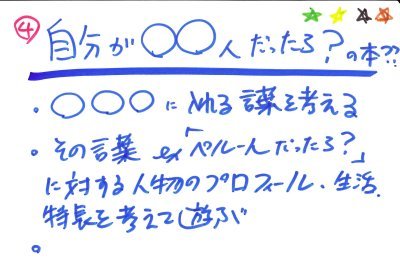 ④ 自分が○○人だったら？の本??
・○○○に入れる言葉を考える
・その言葉 ex「ペルー人だったら？」
に対する人物のプロフィール・生活.
特長を考えて遊ぶ